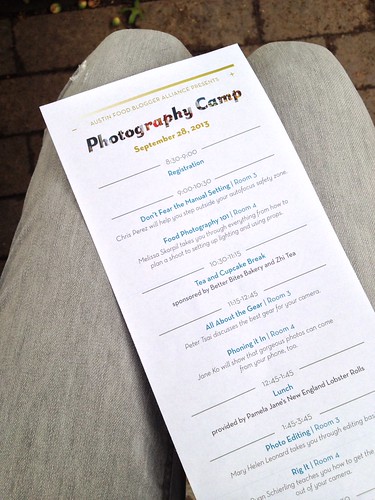 AUSTIN FOOD BLOGGER ALLIANCE PRESENTS
Photography Camp
September 28, 2013
8:30-9:00
Registration
9:00-10:30
Don't Fear the Manual Setting | Room 3
Chris Perez will help you step outside your autofocus safety zone.
Food Photography 101 | Room 4
Melissa Skorpil takes you through everything from how to
plan a shoot to setting up lighting and using props.
10:30-11:15
Tea and Cupcake Break
sponsored by Better Bites Bakery and Zhi Tea
11:15-12:45
All About the Gear | Room 3
Peter Tsai discusses the best gear for your camera.
Phoning it In | Room 4
Jane Ko will show that gorgeous photos can come
from your phone, too.
12:45-1:45
Lunch
provided by Pamela Jane's New England Lobster Rolls
1:45-3:45
Photo Editing | Room 3
Mary Helen Leonard takes you through editing
Rig It | Room 4
Schierling teaches you how to get the
out of your camera.